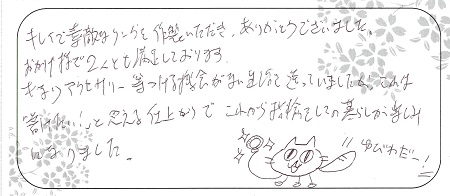 キレイで素敵なリングを作製いただき、ありがとうございました。
おかげ様で2人とも満足しております。
あまりアクセサリー着つける機会がない生活を送っていましたが、これは
「着けたい!」と思える仕上がりで これから夫婦としての暮らしが楽しみ
になりました。
ゆびわだー!